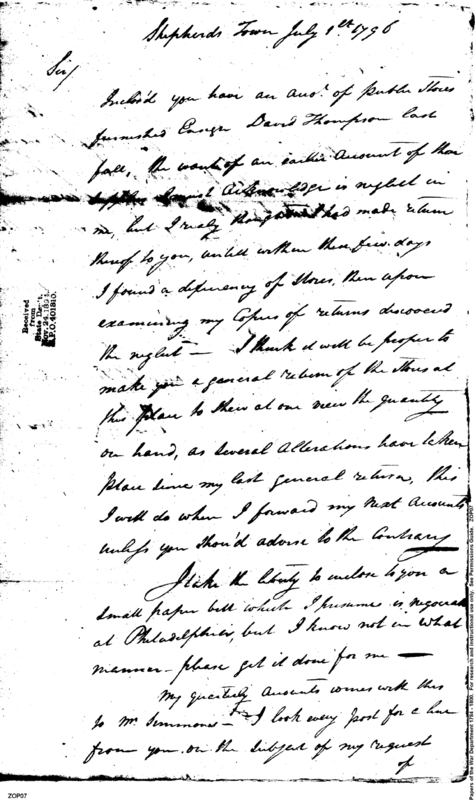 Shepherds Town July 1st 1796
Sir/
Inclos'd you have an Acot. of Public Stores
furnished Ensign David Thompson last
fall, the want of an earlier Account of these
supplies I must Acknowledge is neglect in
me, but I realy thought I had made return
thereof to you, untill within these few days
I found a defficiency of Stores, then upon
examining my Copies of returns discovered
the neglect — I think it will be proper to
make you a general return of the Stores at
this place to shew at one view the quantity
on hand, as several Alterations have taken
place since my last general return, this
I will do when I forward my next Accounts
unless you shou'd advise to the Contrary
I take the liberty to inclose to you a
small paper bill which I presume is negociable
at Philadelphia, but I know not in what
manner – please get it done for me —
My quarterly Accounts comes with this
to Mr. Simmons – I look every post for a line
from you on the Subject of my request
of
Received
from
State Dept.
A.P.O. 401810.
ZOP07